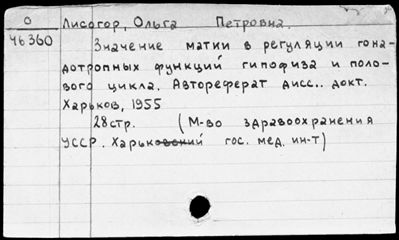 О
46360
Лисогор, Ольга Петровна.
Значение матки в регуляции гона-
дотропных функций гипофиза и поло-
вого цикла. Автореферат дисс.. докт.
Харьков, 1955
28стр. (М-во здравоохранения
УССР. Харьковский гос. мед. ин-т)